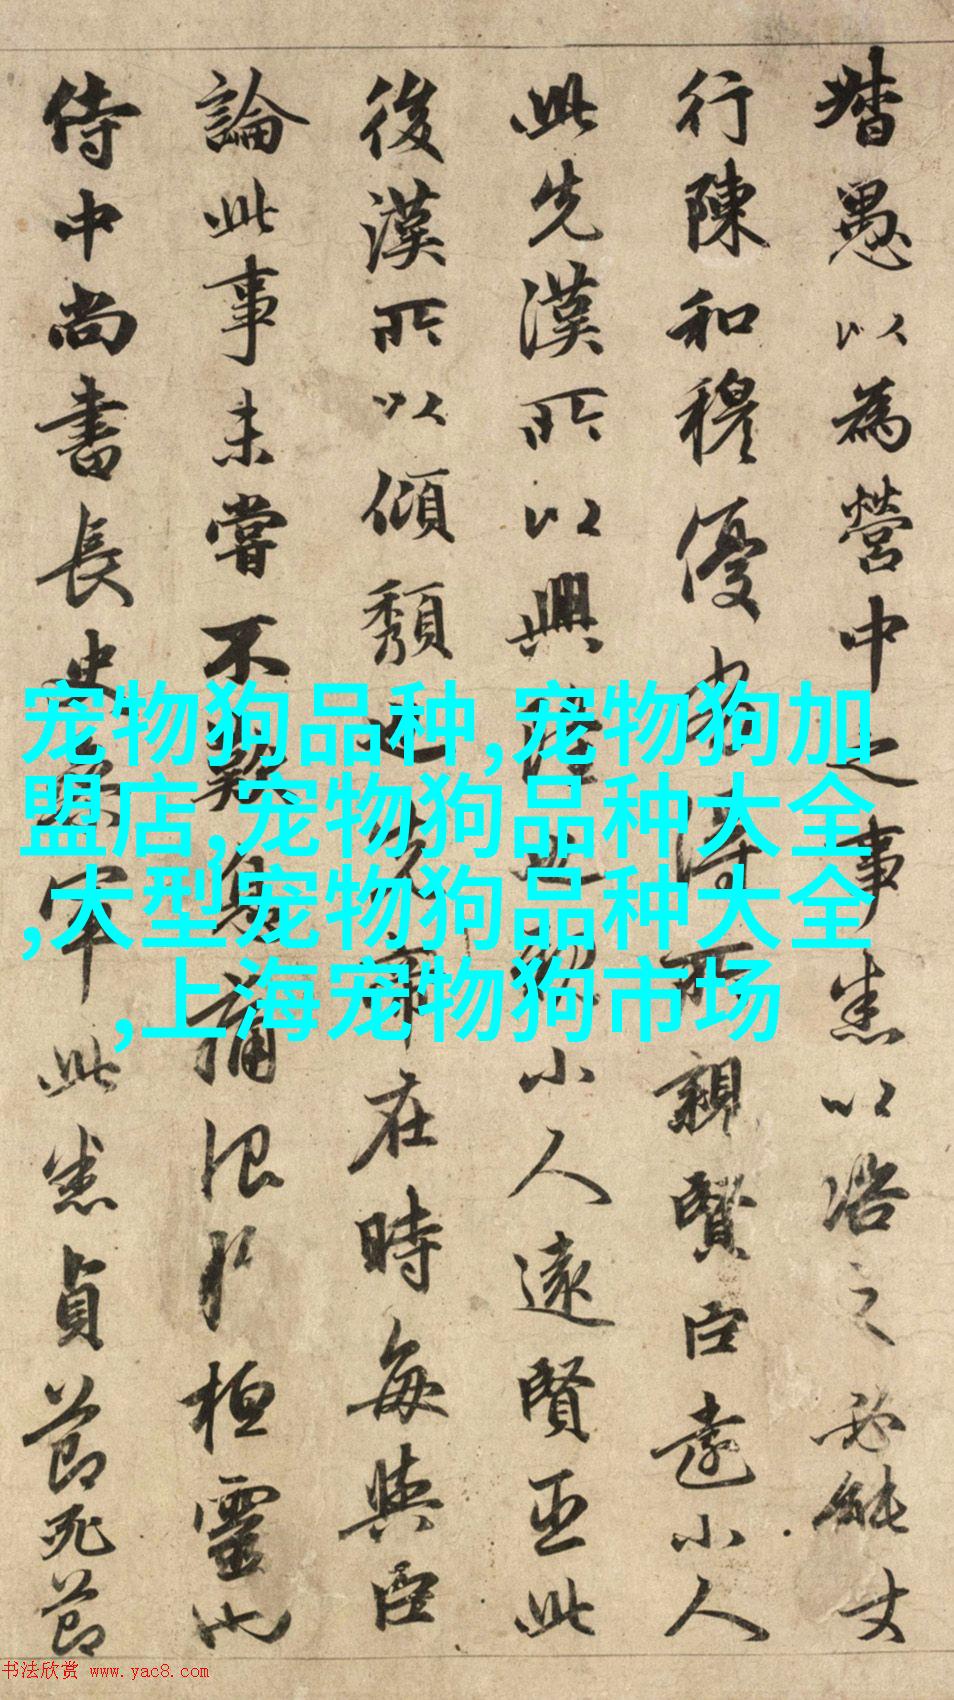 督愚以為營中之事悉以咨之必能丈
行陳和穆優劣得所親賢臣遠小人
此先漢所以興隆也親小人遠賢臣此
後漢所以傾頹也先帝在時每與臣
論此事未嘗不歎息痛恨於桓靈也
侍中尚書長史參軍此悉貞節死節
宠物狗品种,宠物狗加
盟店,宠物狗品种大全
,大型宠物狗品种大全
,上海宠物狗市场
书法欣赏 www.yac8.com